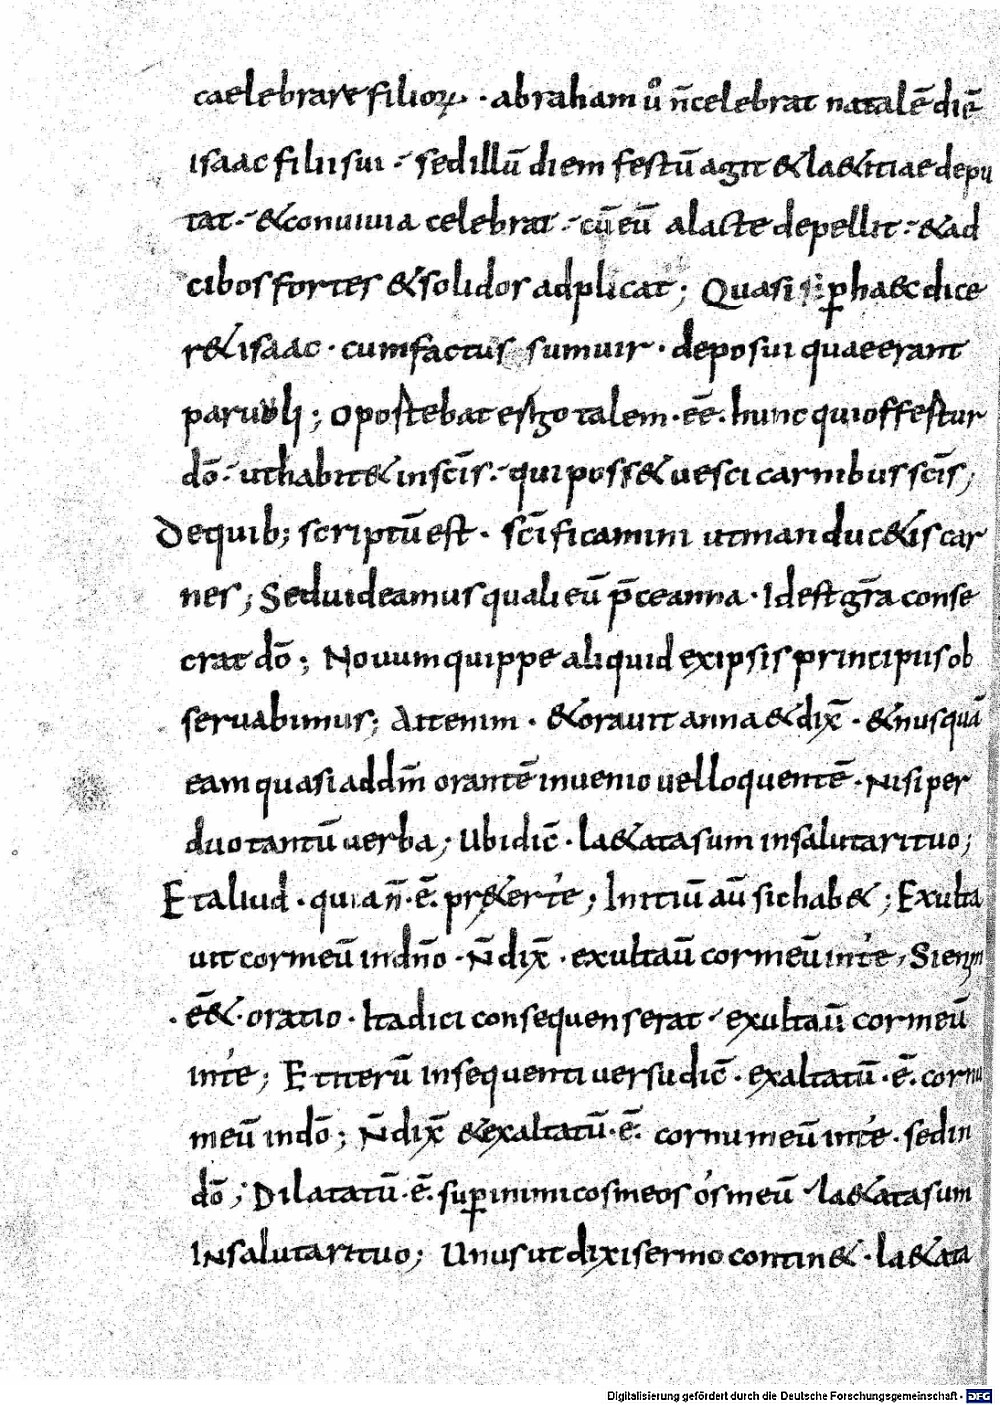 caelebrare filioꝝ · abraham ū n̄ celebrat natalē diē
isaac filii sui · sed illū diem festū agit & la&itiae depu
tat · & conuiuia celebrat · cū eū a lacte depellit · & ad
cibos fortes & solidos adplicat ; Quasi ꝑ haec dice
r& isaac · cum factus sum uir · deposui quae erant
paruoli ; Oportebat ergo talem · ēē · hunc qui offertur
dō · ut habit& in scīs · qui poss& uesci carnibus scīs ;
De quib; scriptū est · scīficamini ut manduc&is car
nes ; Sed uideamus quali eū p̄ce anna · Id est gr̄a conse
crat dō ; Nouum quippe aliquid ex ipsis principiis ob
seruabimus ; Ait enim · & orauit anna & dix̄ · & nusquā
eam quasi ad dn̄m orantē inuenio uel loquentē · Nisi per
duo tantū uerba ; Ubi dic̄ · la&ata sum in salutari tuo ;
Et aliud · quia n̄ · ē · pr&er te ; Initiū aū sic hab& ; Exulta
uit cor meū in dn̄o · N̄ dix̄ · exultaū cor meū in te , Si enim
ē & · oratio · Ita dici consequens erat · exultaū cor meū
in te ; Et iterū insequenti uersu dic̄ · exaltatū · ē · cornu
meū in dō ; N̄ dix̄ & exaltatū · ē · cornu meū in te · sed in
dō ; Dilatatū · ē · suꝑ inimicos meos os meū · la&ata sum
In salutari tuo ; Unus ut dixi sermo contin& · la&ata
Digitalisierung gefördert durch die Deutsche Forschungsgemeinschaft - DFG